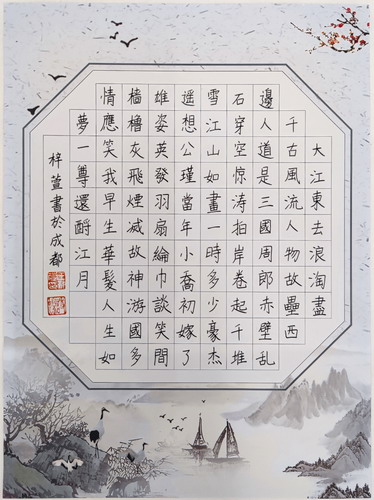 大江東去浪淘盡
千古風流人物故壘西
邊人道是三國周郎赤壁亂
石穿空惊涛拍岸卷起千堆
雪江山如畫一時多少豪杰
遥想公瑾當年小喬初嫁了
雄姿英發羽扇綸巾談笑間
檣櫓灰飛煙滅故神游國多
情應笑我早生華髮人生如
夢一尊還酹江月
梓萱書於成都